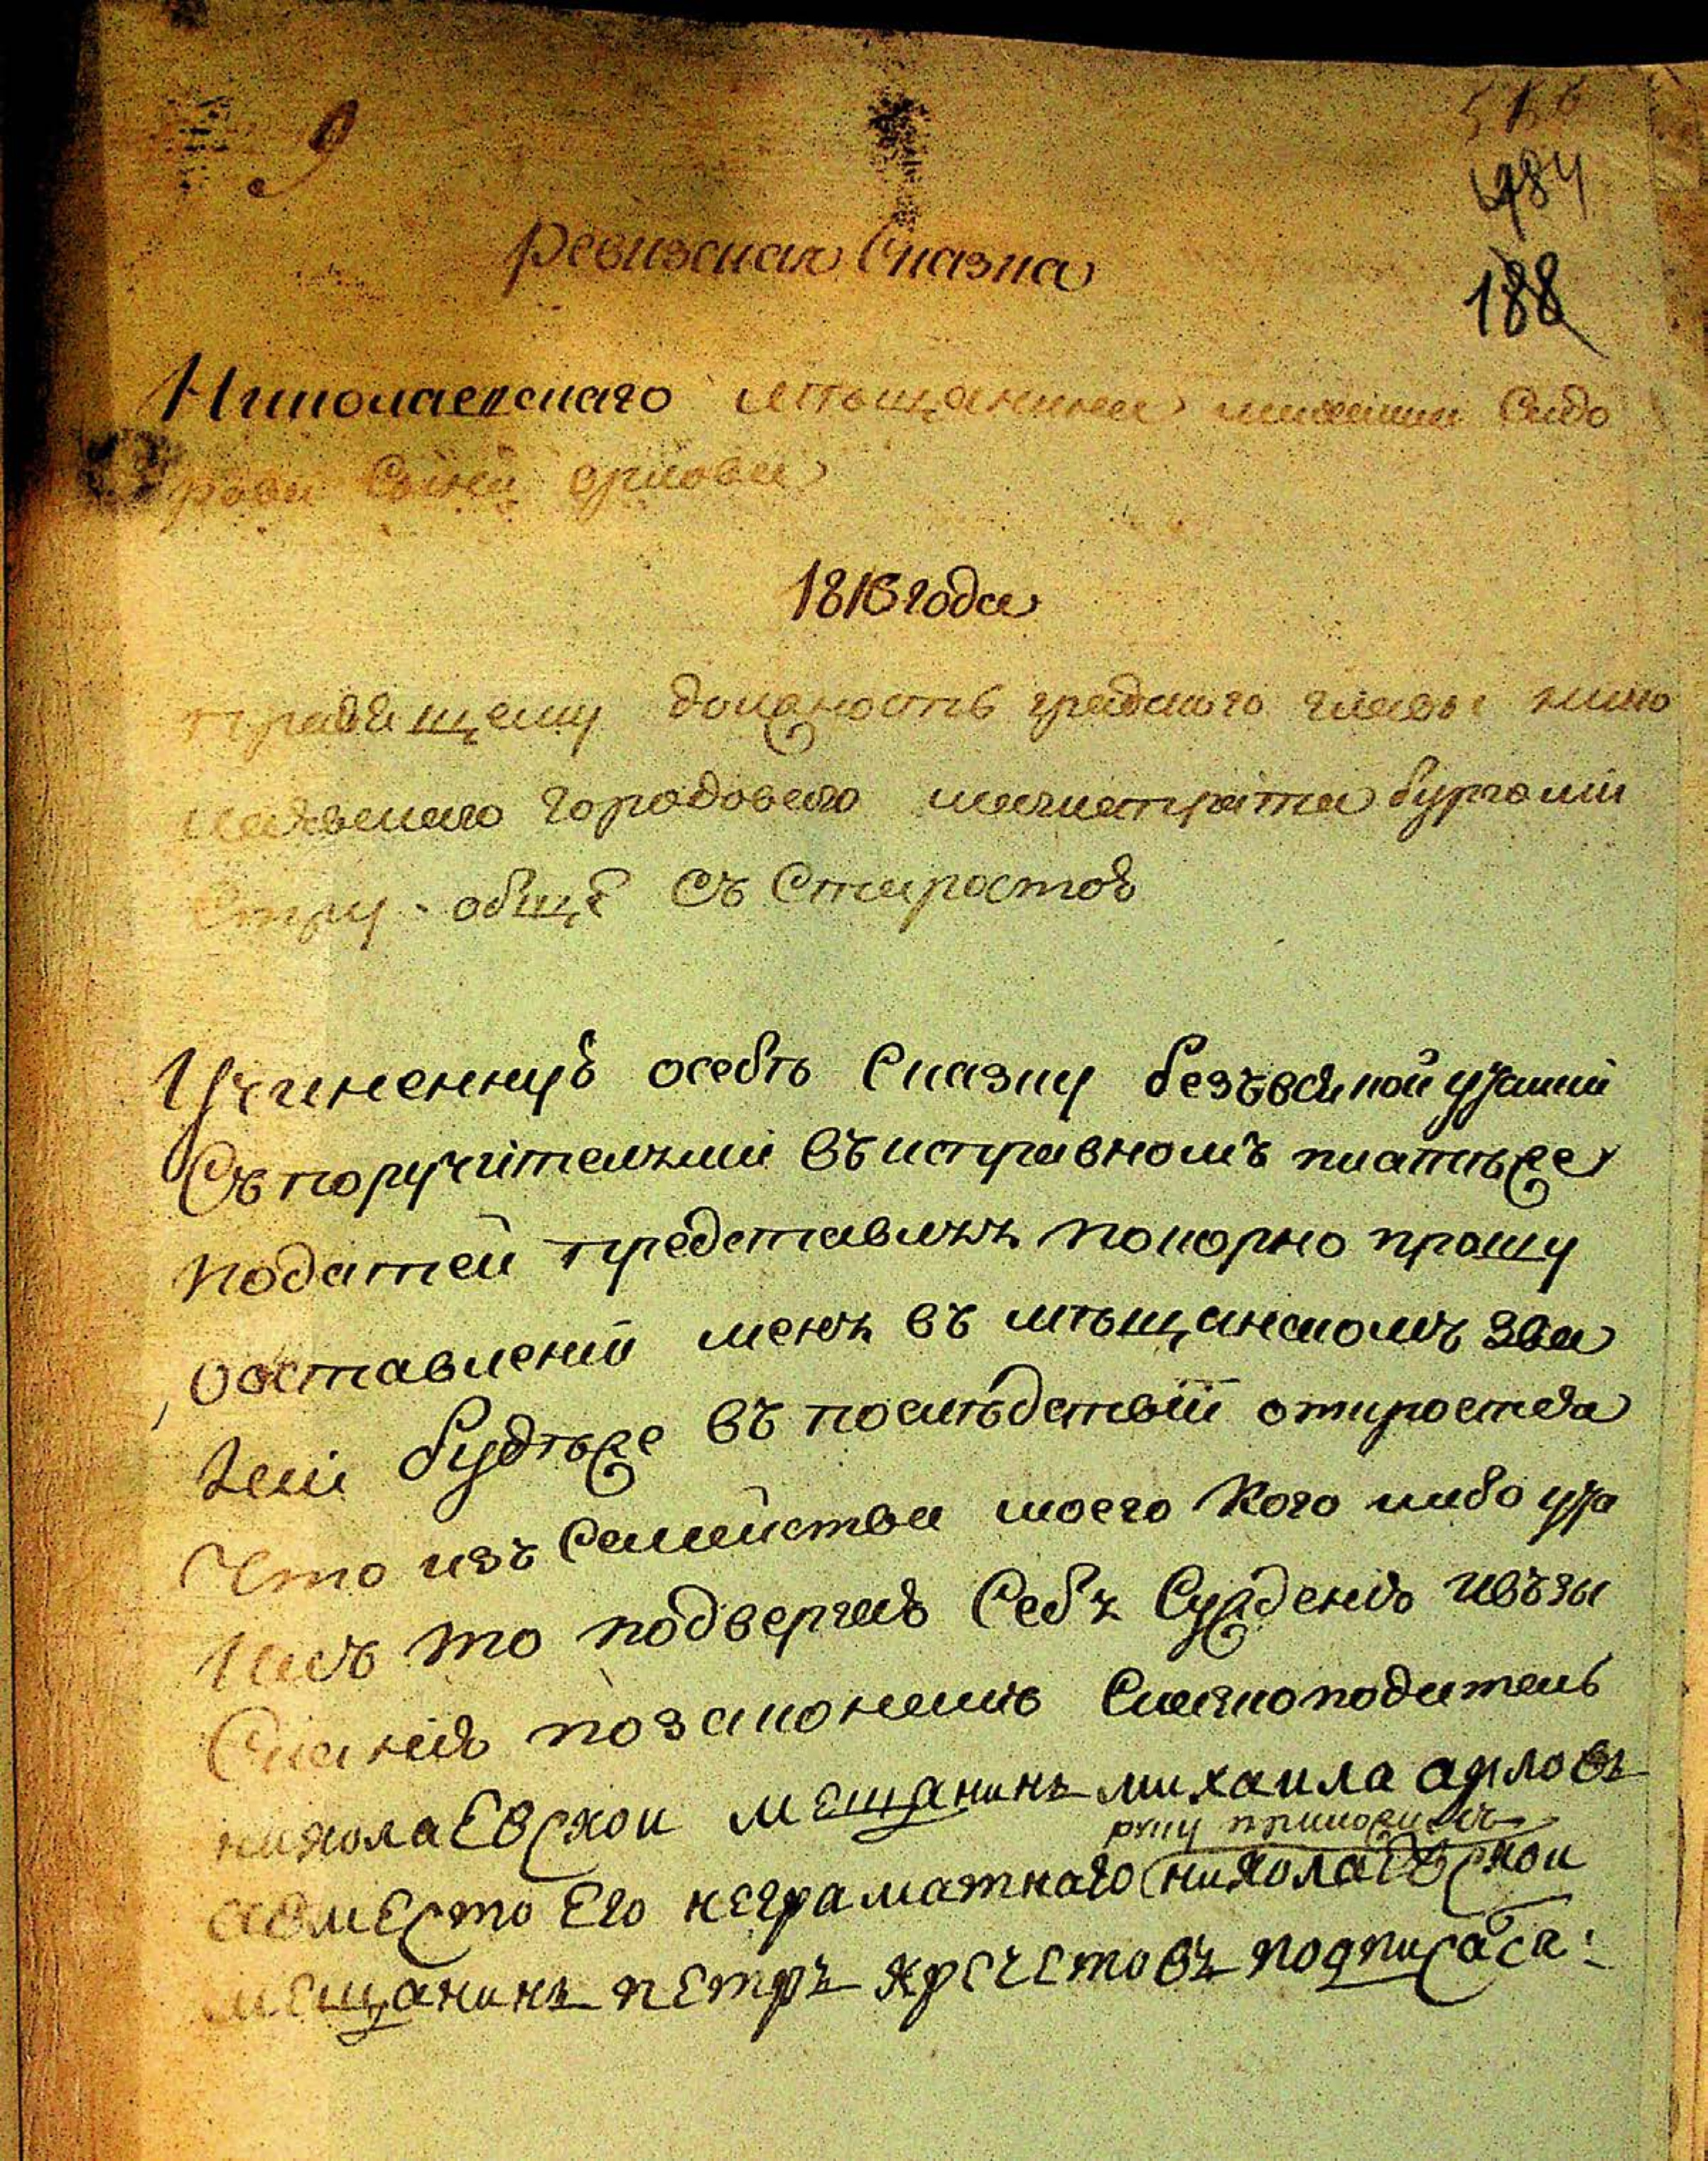 9
484
188
Ревизская Сказка
Николаевскаго мѣщанина михаила Сидо
рова Сына орлова
1816 года
Правящему должность градскаго главы нико
лаевскаго городоваго магистрата бургоми
Стру общѣ Съ Старостою
Учиненную особѣ Сказку безъвсякой утайки
Съ поручителями въ исправномъ платѣже
податей представляя покорно прошу
оставлении меня въ мѣщанскомъ зва
нии будѣже въ послѣдствіи откроется
Что изъ Семейства моего кого либо ута
илъ то подвергаю Себя Суждению ивзы
Сканию позаконамъ Сказкоподатель
николаевской мещанинъ михаила арловъ
руку приложилъ
авместо его неграматнаго николаевской
мещанинъ петръ кречетовъ подписался: